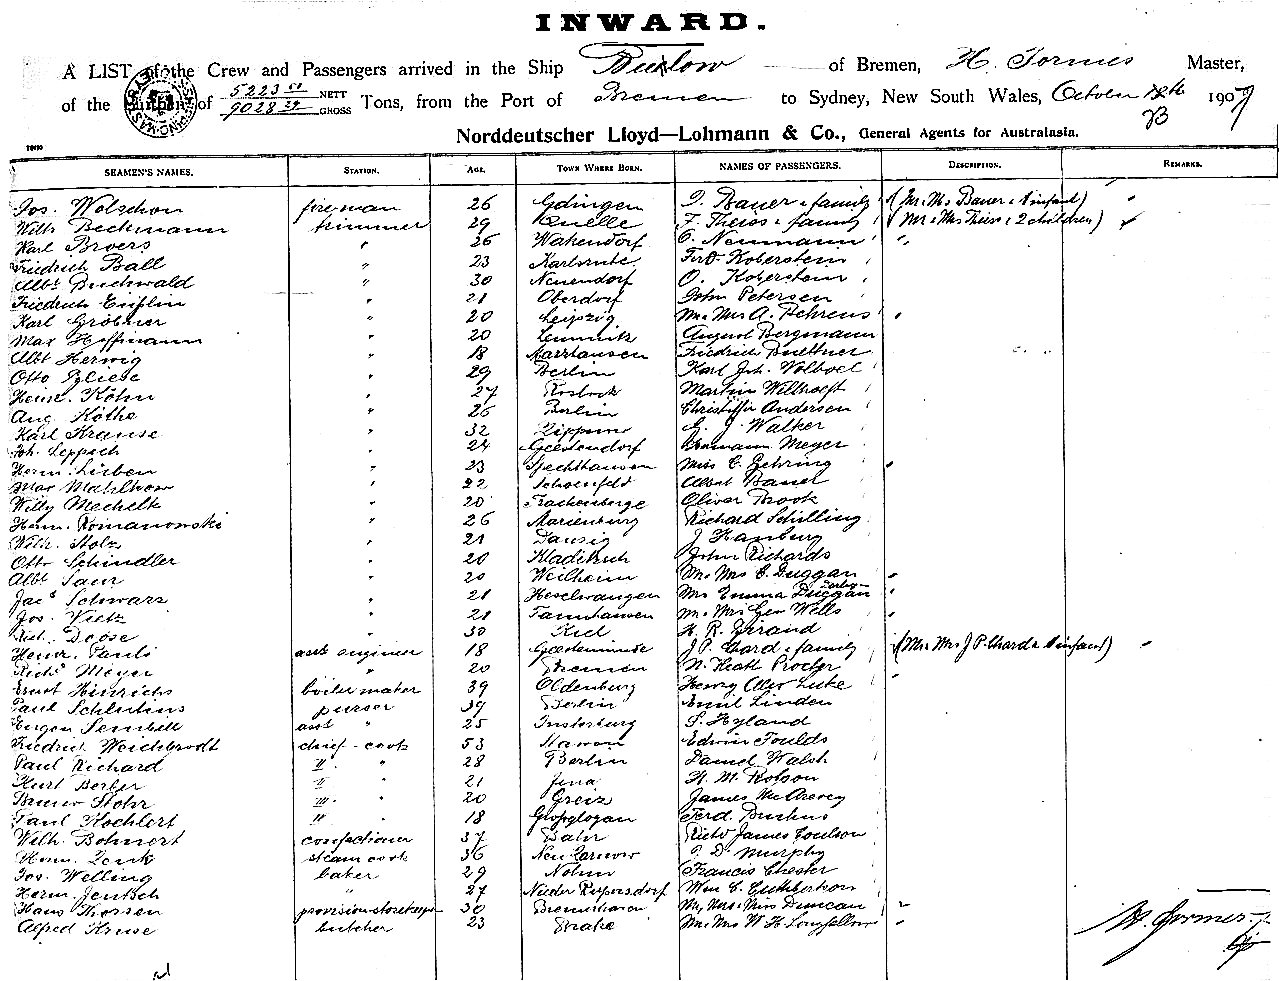 INWARD.
A LIST of the Crew and Passengers arrived in the Ship Bülow of Bremen, H. Formes Master,
of the Burthen of 5223 NETT 9028 GROSS Tons, from the Port of Bremen to Sydney, New South Wales, October 1907
Norddeutscher Lloyd—Lohmann & Co., General Agents for Australasia.
SEAMEN'S NAMES. STATION. AGE. TOWN WHERE BORN. NAMES OF PASSENGERS. DESCRIPTION. REMARKS.
Jos. Wolschon fireman 26 Gdingen Bauer & family (Mr. Mrs Bauer & 1 infant)
Wilh Beckmann trimmer 29 Quelle F. Theiss & family (Mr & Mrs Theiss & 2 children)
Karl Broers " 26 Wakendorf Neumann
Friedrich Ball " 23 Karlsruhe Ferd. Koberstein
Albt Buchwald " 30 Neuendorf O. Koberstein
Friedrich Enslin " 21 Oberdorf John Petersen
Karl Gröbner " 20 Leipzig Mr. Mrs A. Behrens
Max Hoffmann " 20 August Bergmann
Albt Herwig " 18 Friedrich Buettner
Otto " 29 Berlin Karl Joh.
Heinr. Köhn " 27 Rostock Martin
Aug. Köthe " 26 Berlin Andersen
Karl Krause " 32 J. Walker
Joh. Leppich " 24 Geestendorf Hermann Meyer
Herm. Lieben " 23 Spechthausen Miss C. Gehring
Max Mahlkow " 22 Schoenfeld Albert Bauer
Willy Mechelk " 20 Trachenberge Oliver Brook
Herm. Romanowski " 26 Marienburg Richard Schilling
Wilh. Stolz " 21 Danzig J Hamburg
Otto Schindler " 20 John Richards
Albt Saur " 20 Weilheim Mr. Mrs E. Duggan
Jac. Schwarz " 21 Heselwangen Mrs Emma Duggan
Jos. Vietz " 21 Tannhausen Mr. Mrs Geo Wells
Rich. Doose " 30 Kiel H. R. Girand
Heinr. Pauli asst engineer 18 Geestemünde J. P. Chard & family (Mr. Mrs J P. Chard & 1 infant)
Richd Meyer " 20 Bremen N. Heath Procter
Ernst Hinrichs boilermaker 39 Oldenburg Henry Luke
Paul Schlutius purser 39 Berlin Emil Linden
Eugen Sembill asst " 25 Insterburg S. Hyland
Friedrich Weichbrodt chief-cook 53 Edwin Foulds
Paul Richard II. " 28 Berlin Daniel Walsh
Kurt Berler II " 21 Jena H. M. Robson
Bruno Stohr III. " 20 Greiz James McAreavy
Paul Kochlert " " 18 Großglogau Ferd. Bushus
Wilh. Bohnert confectioner 37 Lahr Richd James Coulson
Herm. Zenk steam cook 36 D. Murphy
Jos. Welling baker 29 Nohn Francis Chester
Herm. Jentsch " 27 Nieder Rupersdorf Wm C. Cuthbertson
Hans Thossen provision-storekeeper 30 Bremerhaven Mr, Mrs & Miss Duncan
Alfred Kruse butcher 23 Brake Mr. Mrs W. H. Longfellow
H. Formes